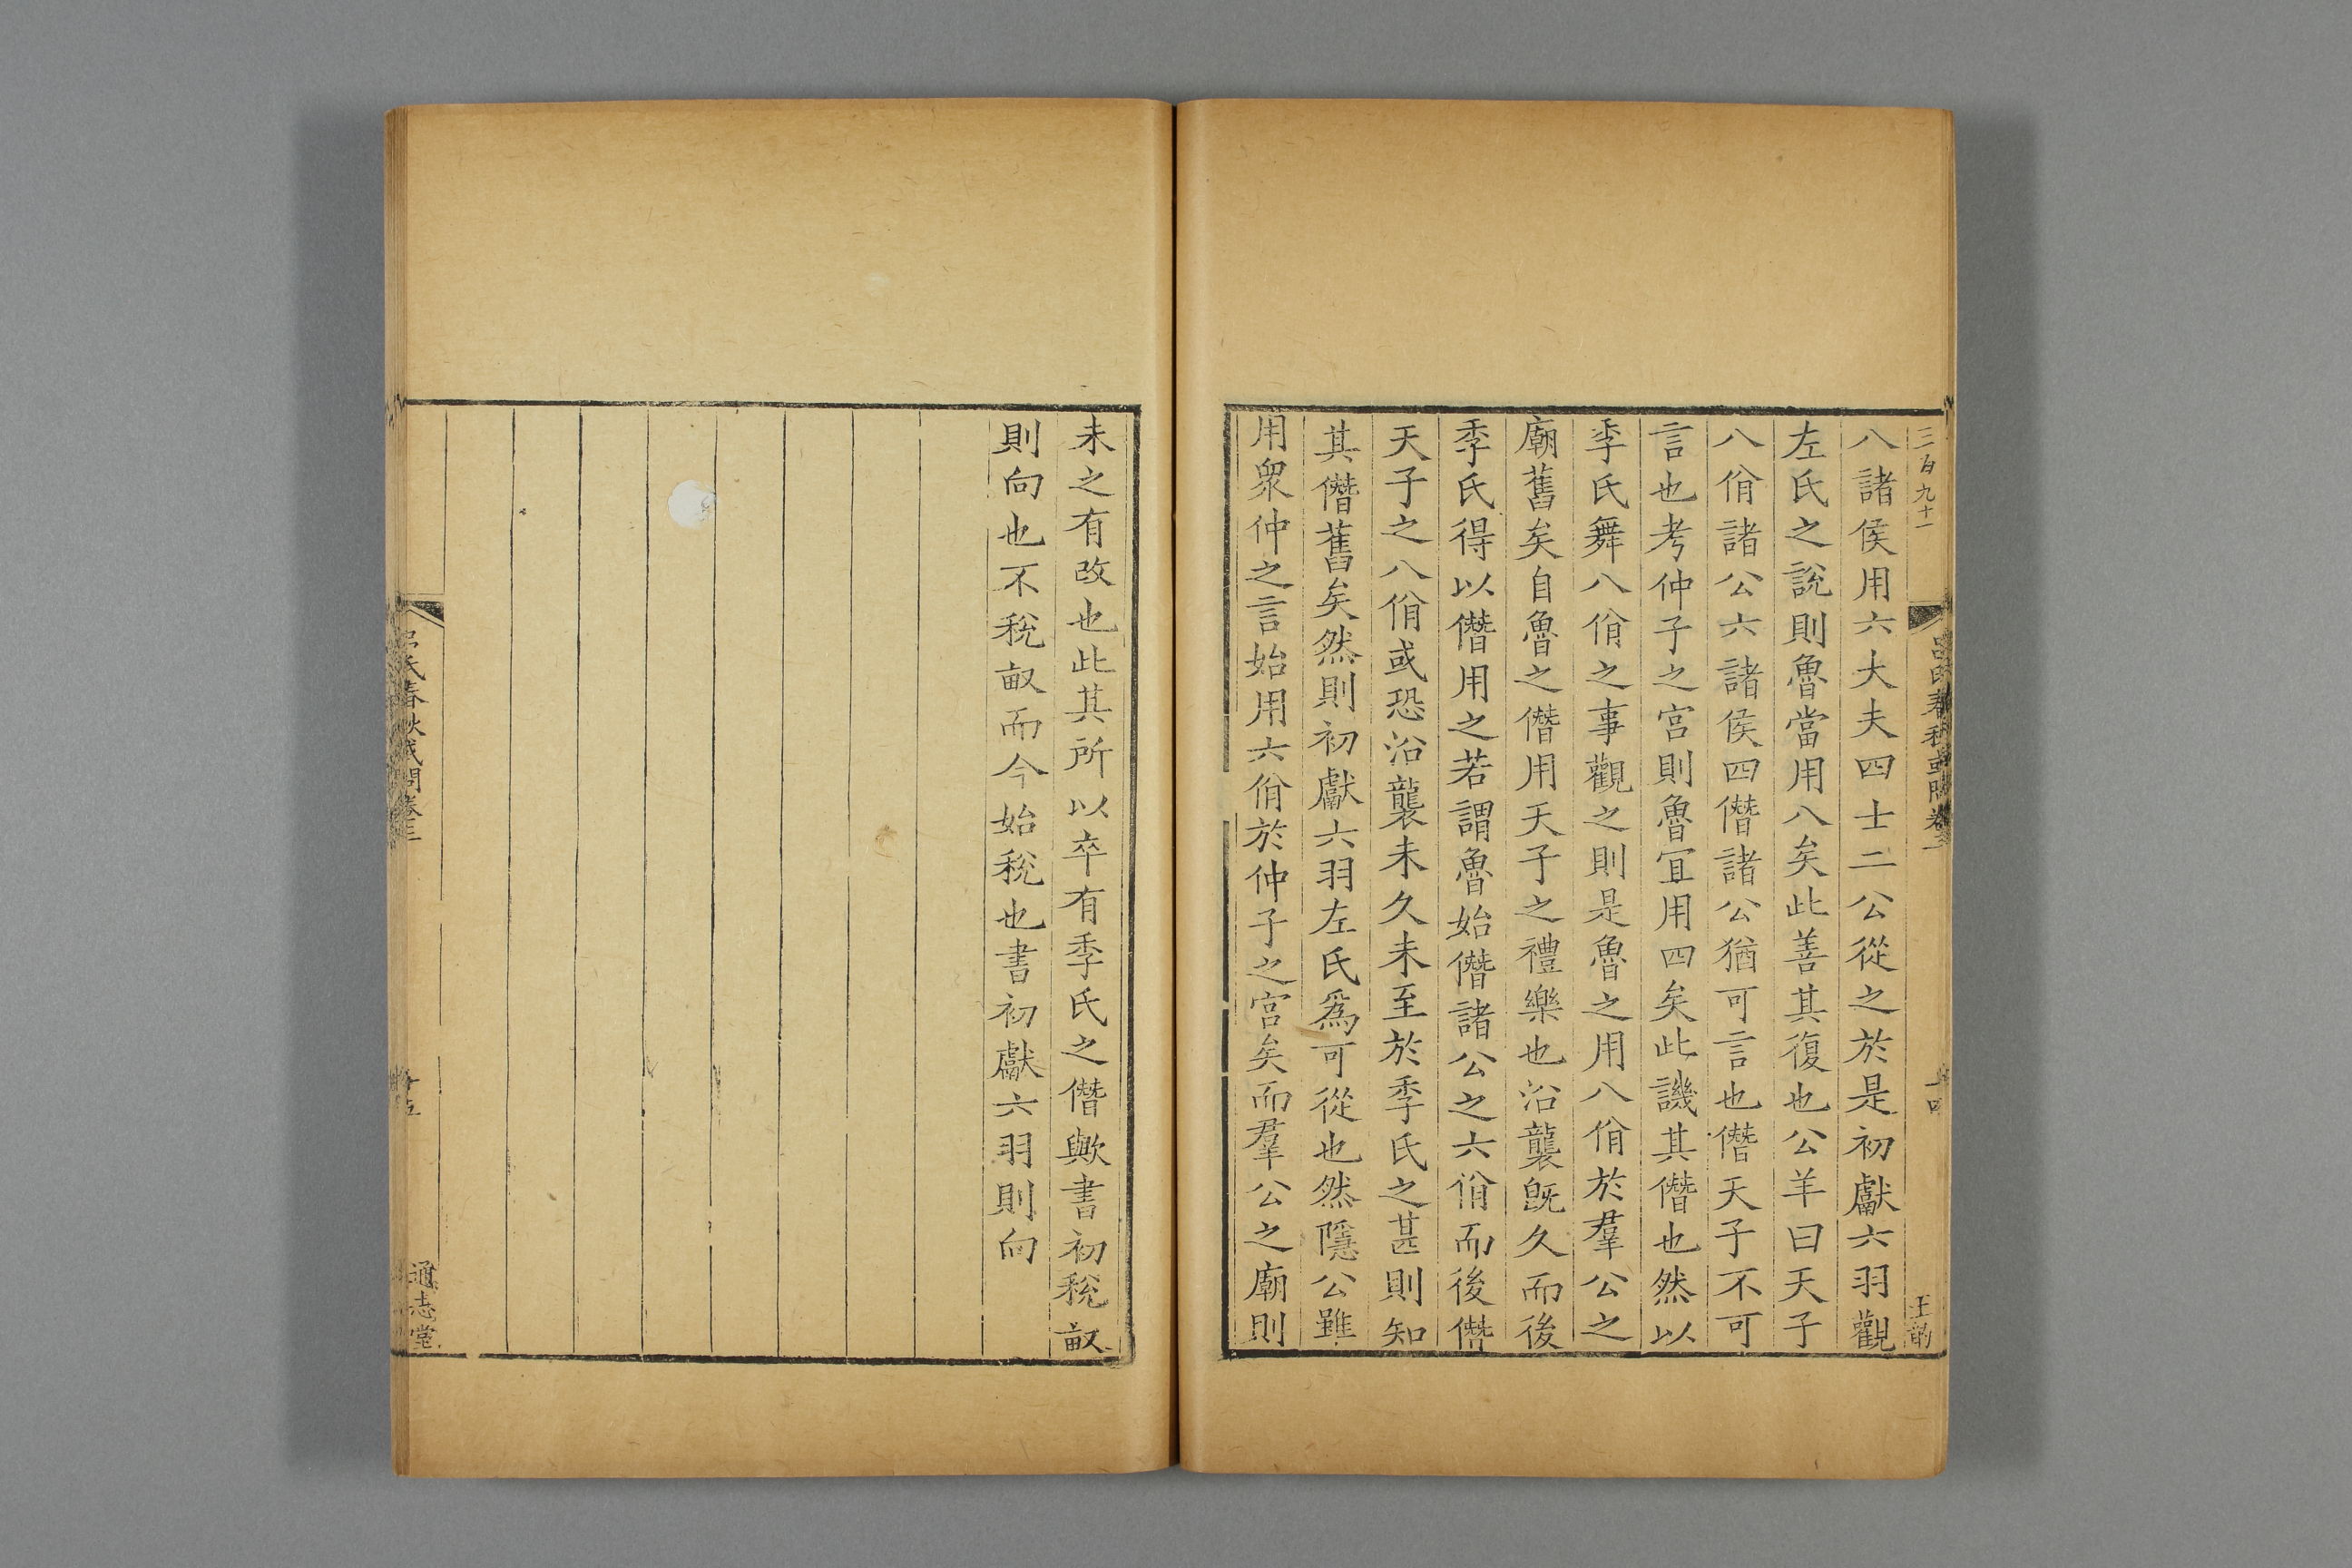 三百九十一
呂氏春秋或問卷三
十四
王的
八諸侯用六大夫四士二公從之於是初獻六羽觀
左氏之說則魯當用八矣此善其復也公羊曰天子
八佾諸公六諸侯四僭諸公猶可言也僭天子不可
言也考仲子之宮則魯宜用四矣此譏其僭也然以
季氏舞八佾之事觀之則是魯之用八佾於羣公之
廟舊矣自魯之僭用天子之禮樂也沿襲旣久而後
季氏得以僭用之若謂魯始僭諸公之六佾而後僭
天子之八佾或恐沿襲未久未至於季氏之甚則知
其僭舊矣然則初獻六羽左氏爲可從也然隱公雖
用衆仲之言始用六佾於仲子之宮矣而羣公之廟則
未之有改也此其所以卒有季氏之僭歟書初稅畝
則向也不稅畝而今始稅也書初獻六羽則向
呂氏春秋或問卷三
十五
通志堂